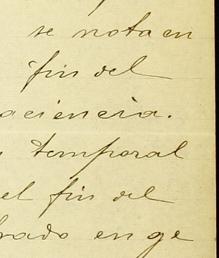 se nota en
fin del
aciencia.
temporal
el fin del
rado en ge